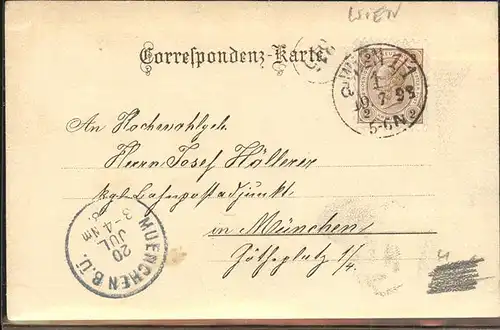 WIEN
Correspondenz-Karte.
WIEN
19 7 98
5-6N
2 2
An Hochwohlgeb.
Herrn Josef Höllerer
kgl. Bahnpostadjunkt
in München
Göthe platz 1/4.
MUENCHEN B.Ü.
20
JUL
3-4 Nm